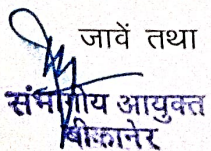 जावें तथा
संभागीय आयुक्त
बीकानेर